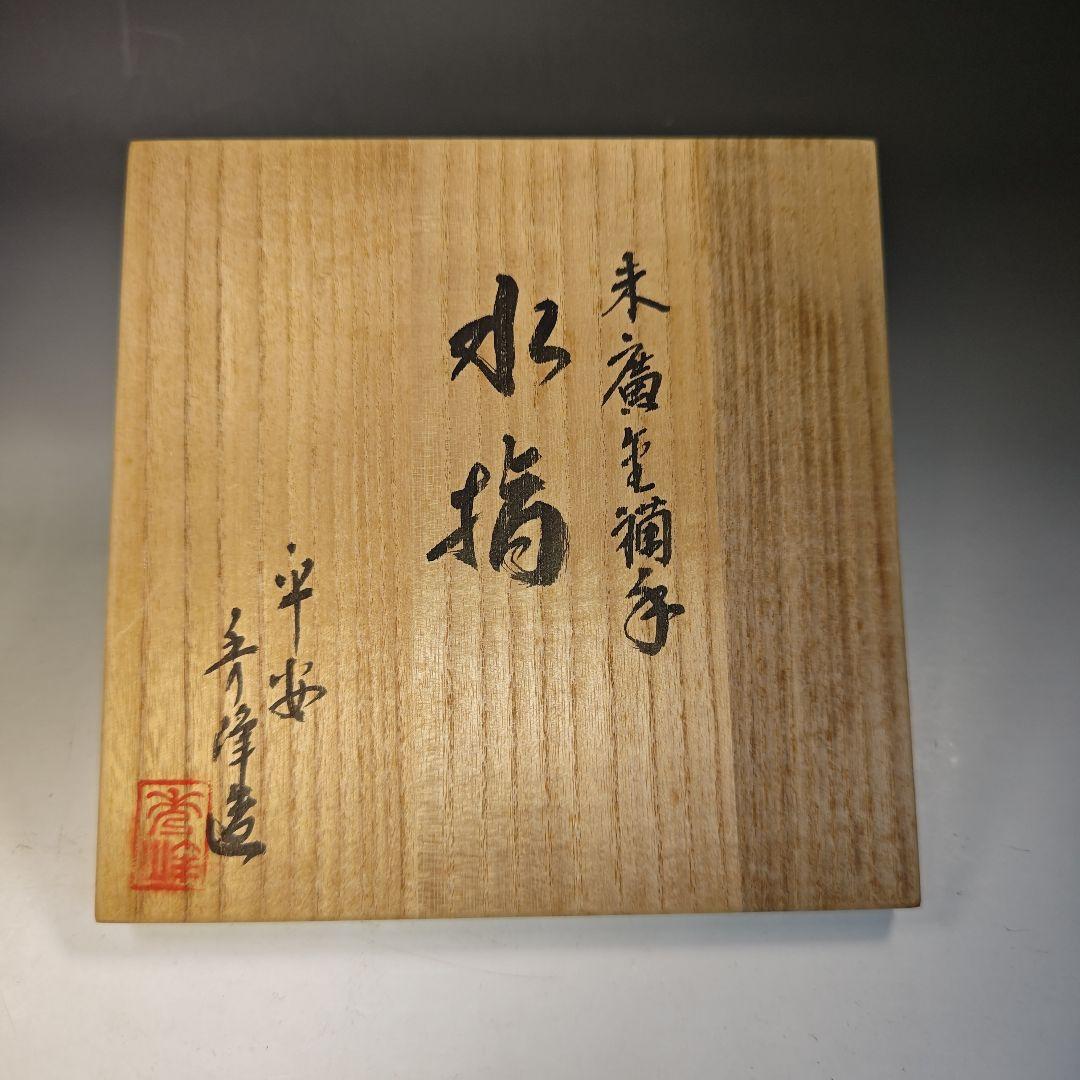 末廣金襴手
水指
平安
秀峰造
秀峰